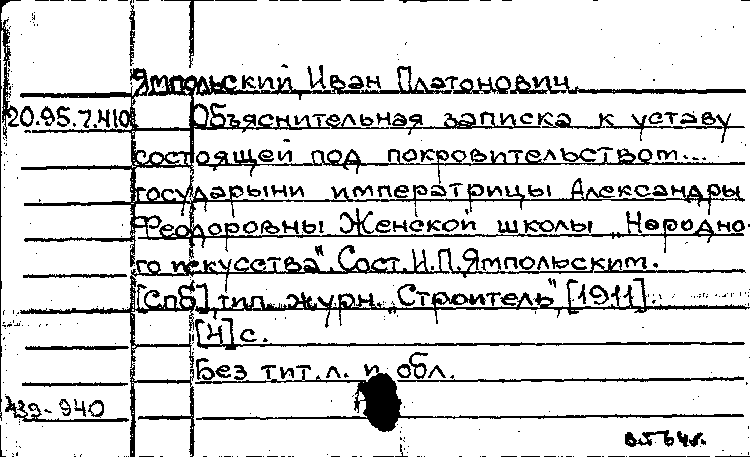 Ямпольский, Иван Платонович.
20.95.7.410 Объяснительная записка к уставу
состоящей под покровительством...
государыни императрицы Александры
Феодоровны Женской школы „Народно-
го искусства". Сост. И.П. Ямпольским.
[Спб], тип. журн. „Строитель", [1911]
[4] с.
Без тит. л. и обл.
439-940